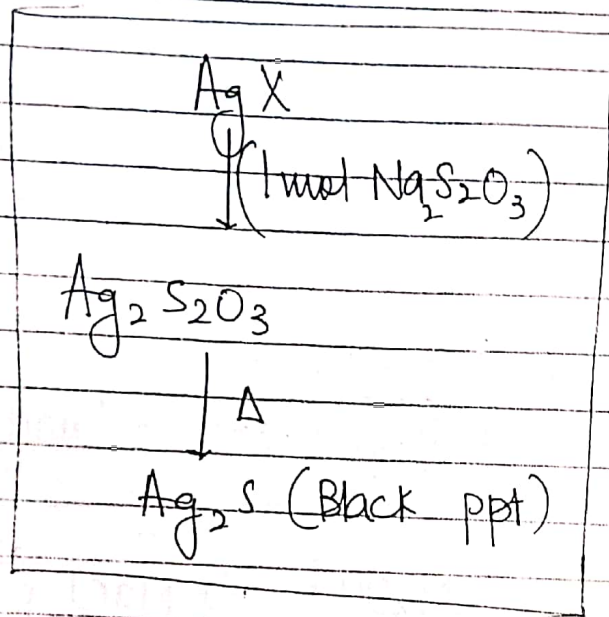 Ag X
(1 mol Na₂S₂O₃)
Ag₂S₂O₃
Δ
Ag₂S (Black ppt)